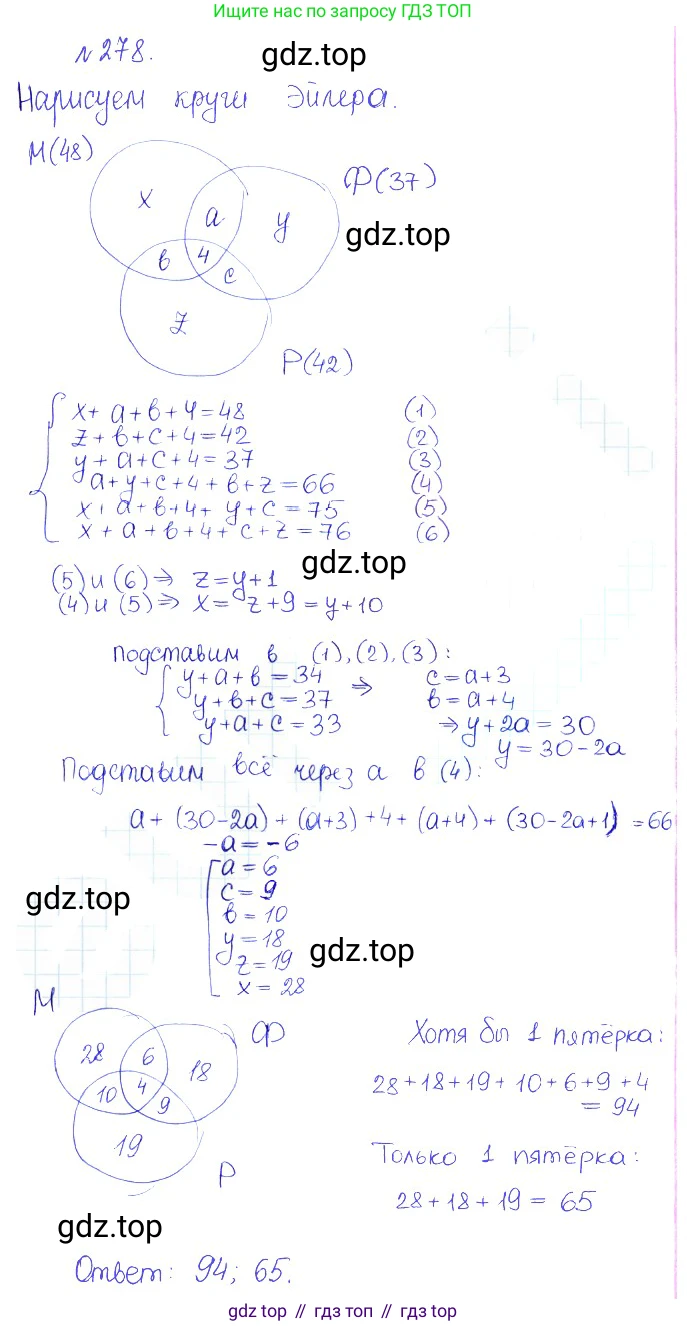 Ищите нас по запросу ГДЗ ТОП
№278.
gdz.top
Нарисуем круги Эйлера.
M(48)
Ф(37)
x
a
y
gdz.top
в
4
c
z
P(42)
x + a + в + 4 = 48 (1)
z + в + c + 4 = 42 (2)
y + a + c + 4 = 37 (3)
a + y + c + 4 + в + z = 66 (4)
x + a + в + 4 + y + c = 75 (5)
x + a + в + 4 + c + z = 76 (6)
gdz.top
(5) и (6) ⇒ z = y + 1
(4) и (5) ⇒ x = z + 9 = y + 10
подставим в (1), (2), (3):
y + a + в = 34 ⇒ c = a + 3
y + в + c = 37 в = a + 4
y + a + c = 33 ⇒ y + 2a = 30
y = 30 - 2a
Подставим всё через a в (4):
a + (30 - 2a) + (a + 3) + 4 + (a + 4) + (30 - 2a + 1) = 66
- a = - 6
a = 6
gdz.top
c = 9
в = 10
y = 18
gdz.top
z = 19
x = 28
M
Ф
28
6
18
10
4
9
19
P
Хотя бы 1 пятёрка:
28 + 18 + 19 + 10 + 6 + 9 + 4
= 94
Только 1 пятёрка:
28 + 18 + 19 = 65
gdz.top
Ответ: 94; 65.
gdz top // гдз топ // gdz top